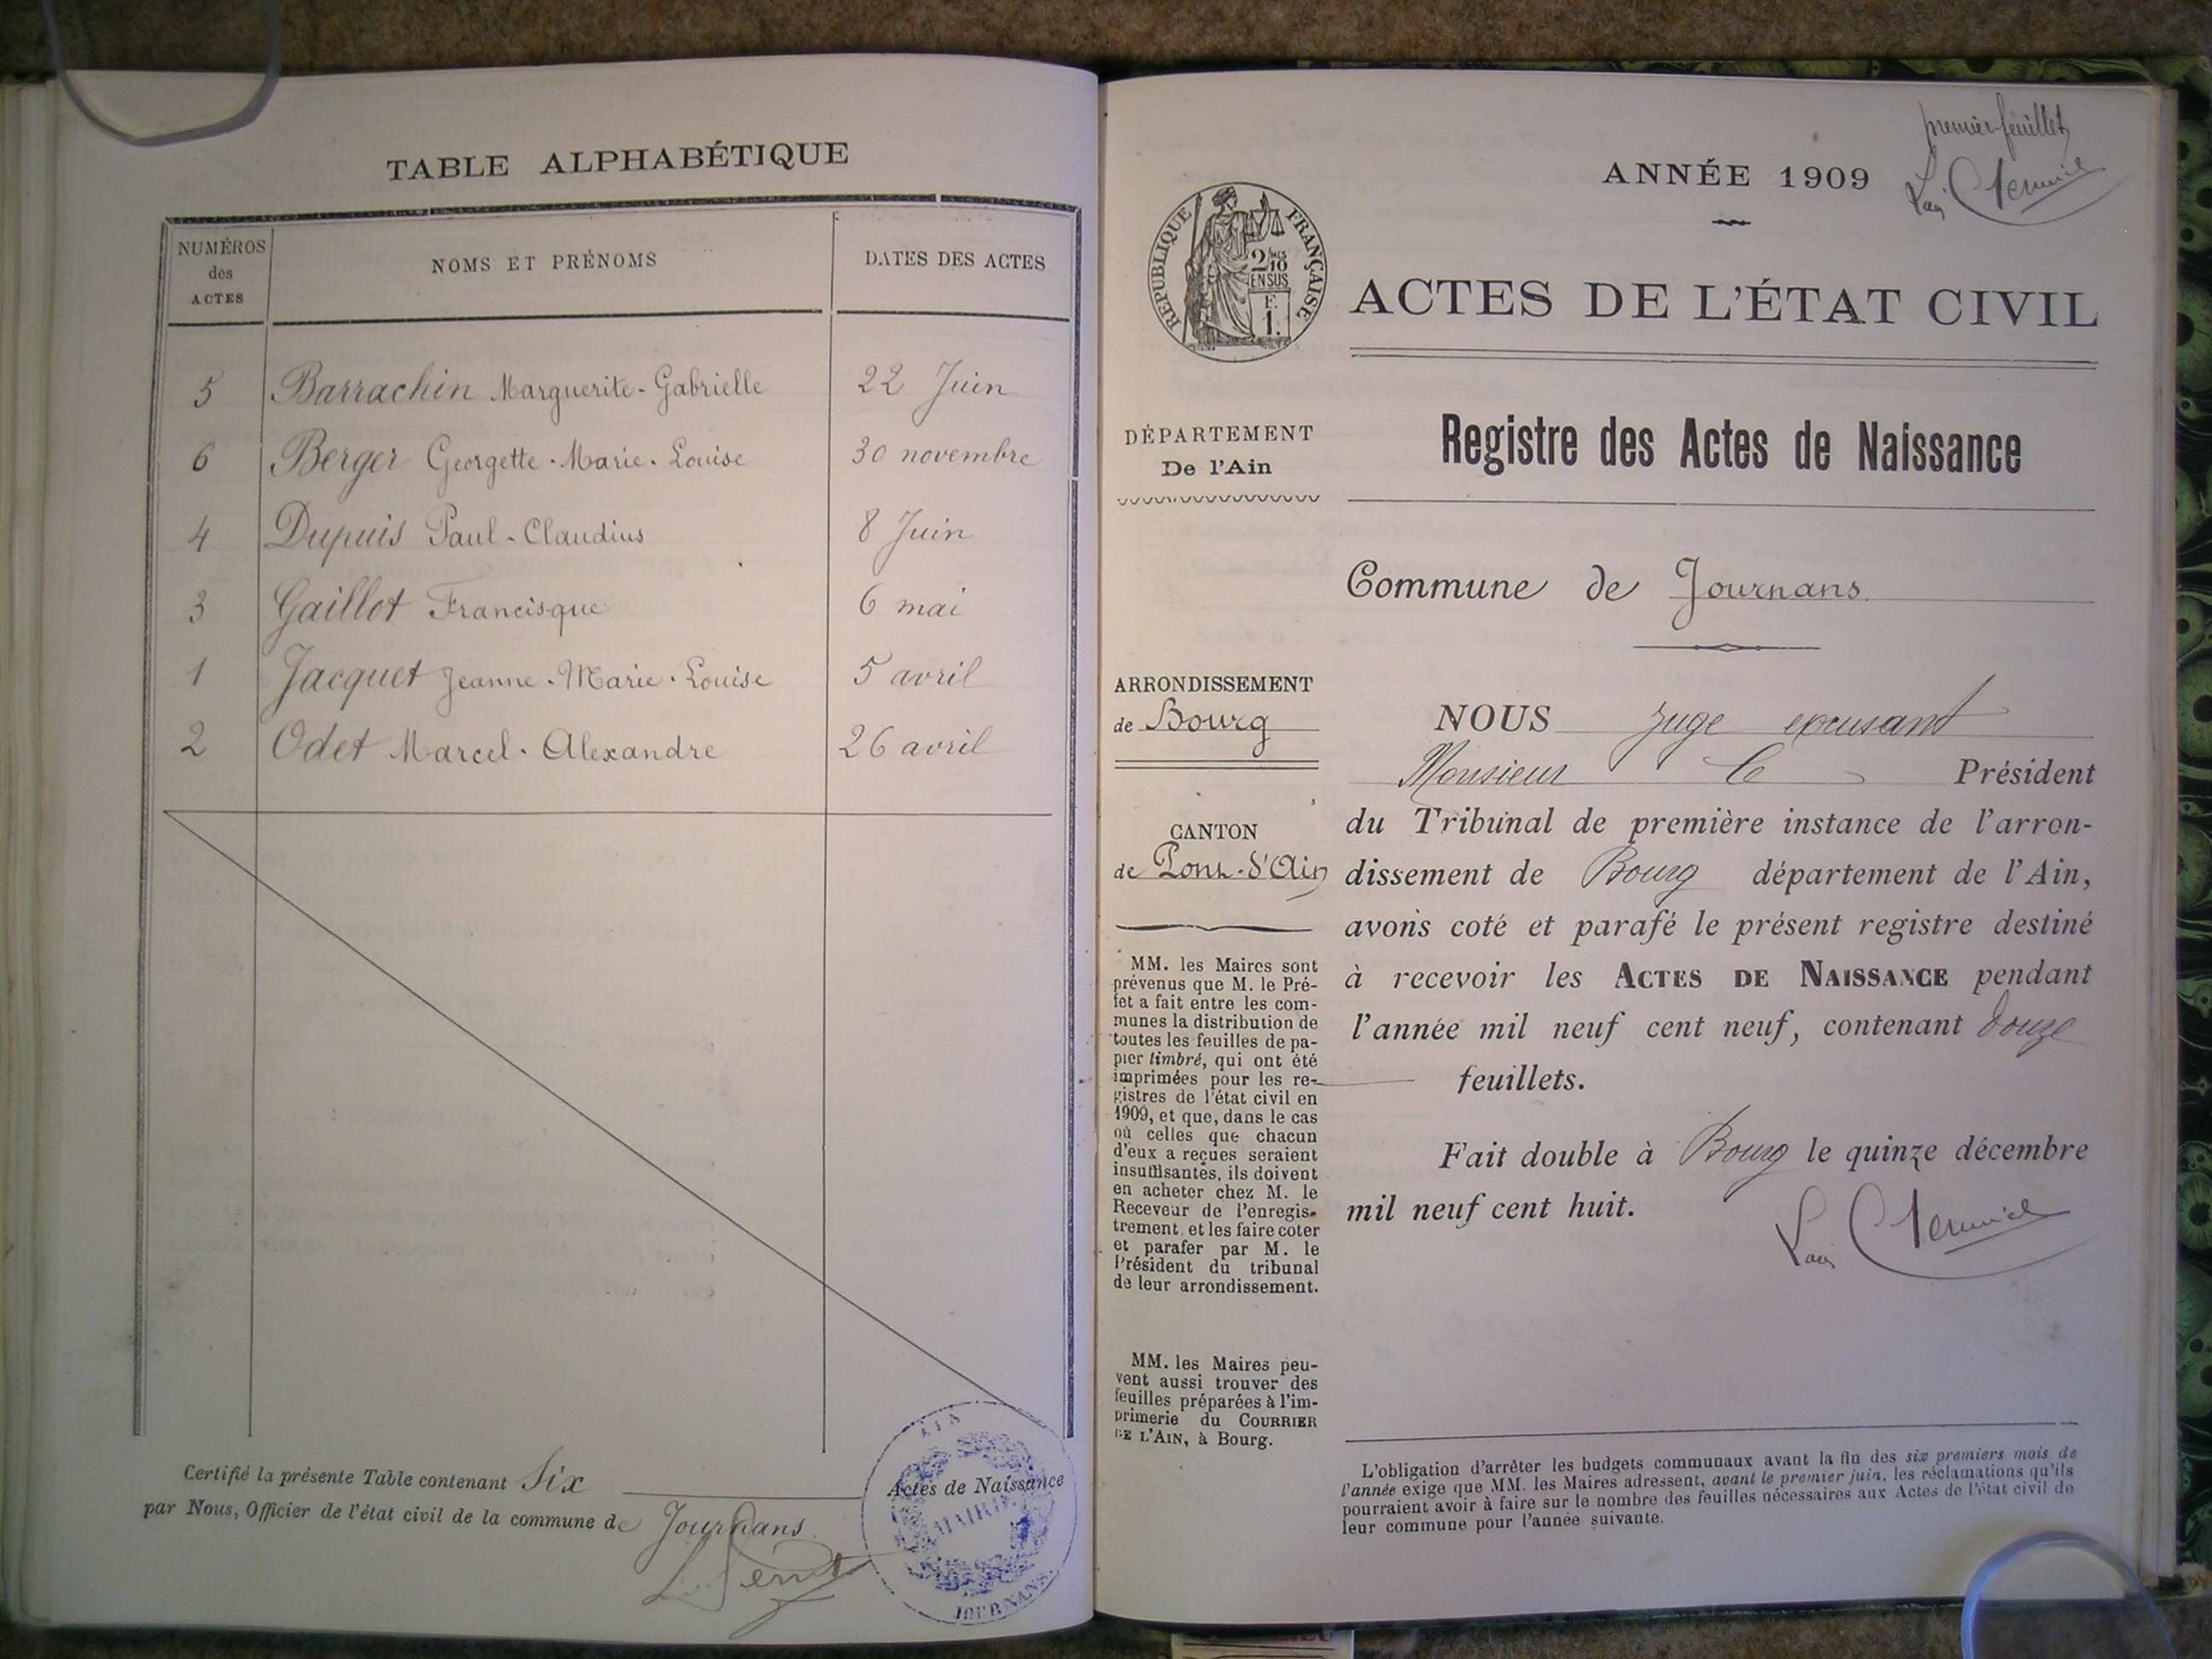 TABLE ALPHABÉTIQUE
NUMÉROS
des
ACTES
NOMS ET PRÉNOMS
DATES DES ACTES
5 Barrachin Marguerite-Gabrielle 22 Juin
6 Berger Georgette-Marie-Louise 30 novembre
4 Dupuis Paul-Claudius 8 Juin
3 Gaillot Francisque 6 mai
1 Jacquet Jeanne-Marie-Louise 5 avril
2 Odet Marcel-Alexandre 26 avril
Certifié la présente Table contenant Six Actes de Naissance
par Nous, Officier de l'état civil de la commune de Journans
AIN
MAIRIE
JOURNANS
premier feuillet
ANNÉE 1909
RÉPUBLIQUE FRANÇAISE
2/10
EN SUS
F.
1.
ACTES DE L'ÉTAT CIVIL
DÉPARTEMENT
De l'Ain
Registre des Actes de Naissance
Commune de Journans
ARRONDISSEMENT
de Bourg
CANTON
de Pont-d'Ain
MM. les Maires sont
prévenus que M. le Pré-
fet a fait entre les com-
munes la distribution de
toutes les feuilles de pa-
pier timbré, qui ont été
imprimées pour les re-
gistres de l'état civil en
1909, et que, dans le cas
où celles que chacun
d'eux a reçues seraient
insuffisantes, ils doivent
en acheter chez M. le
Receveur de l'enregis-
trement et les faire coter
et parafer par M. le
Président du tribunal
de leur arrondissement.
MM. les Maires peu-
vent aussi trouver des
feuilles préparées à l'im-
primerie du COURRIER
DE L'AIN, à Bourg.
NOUS juge excusant
Monsieur le Président
du Tribunal de première instance de l'arron-
dissement de Bourg département de l'Ain,
avons coté et parafé le présent registre destiné
à recevoir les ACTES DE NAISSANCE pendant
l'année mil neuf cent neuf, contenant douze
feuillets.
Fait double à Bourg le quinze décembre
mil neuf cent huit.
L'obligation d'arrêter les budgets communaux avant la fin des six premiers mois de
l'année exige que MM. les Maires adressent, avant le premier juin, les réclamations qu'ils
pourraient avoir à faire sur le nombre des feuilles nécessaires aux Actes de l'état civil de
leur commune pour l'année suivante.